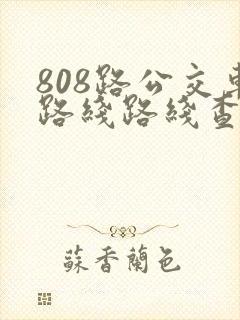 808路公交車
路綫路綫查
蘇香蘭色